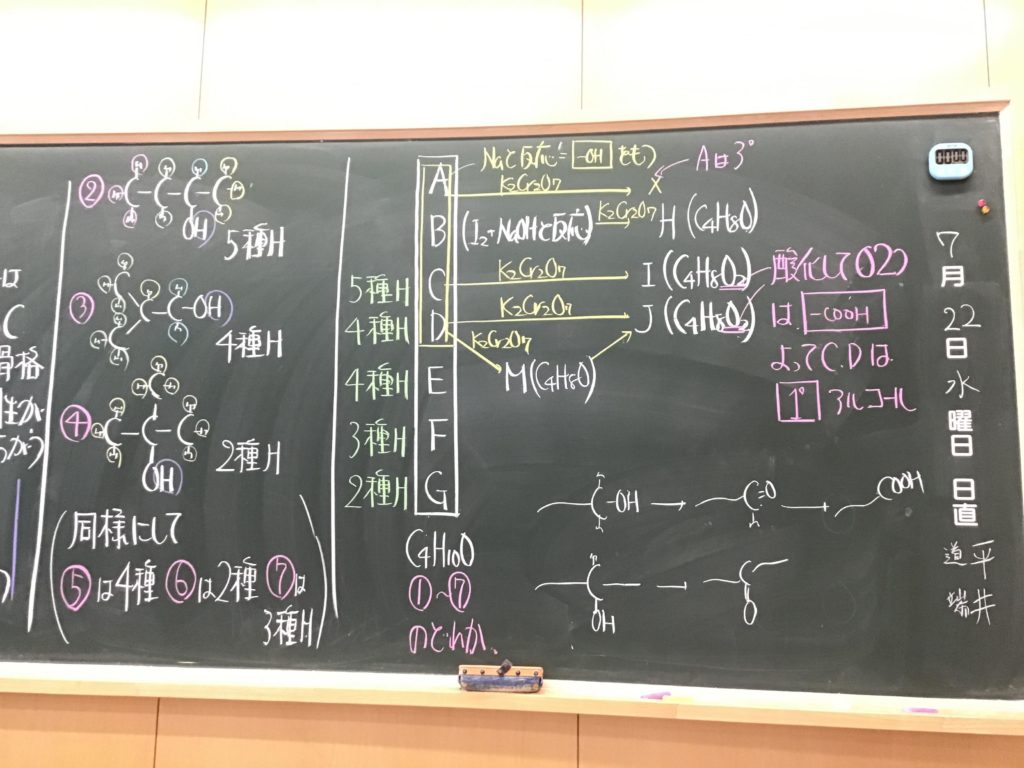 は
C
骨格
性が
ちがう
②
C-C-C-C
OH
5種H
③
C
C-C-C-OH
4種H
④
C
C-C-C
OH
2種H
同様にして
⑤は4種 ⑥は2種 ⑦は
3種H
Naと反応=-OHをもつ
A K2Cr2O7 X Aは3°
B (I2+NaOHと反応) K2Cr2O7 H (C4H8O)
5種H C K2Cr2O7 I (C4H8O2) 酸化してO2つ
4種H D K2Cr2O7 J (C4H8O2) は -COOH
K2Cr2O7
4種H E M(C4H8O) よってC.Dは
1° アルコール
3種H F
2種H G
C4H10O
①~⑦
のどれか、
H
C-OH → C=O → COOH
H H
H
C → C
OH O
00:00
7月22日水曜日 日直
道平
端井